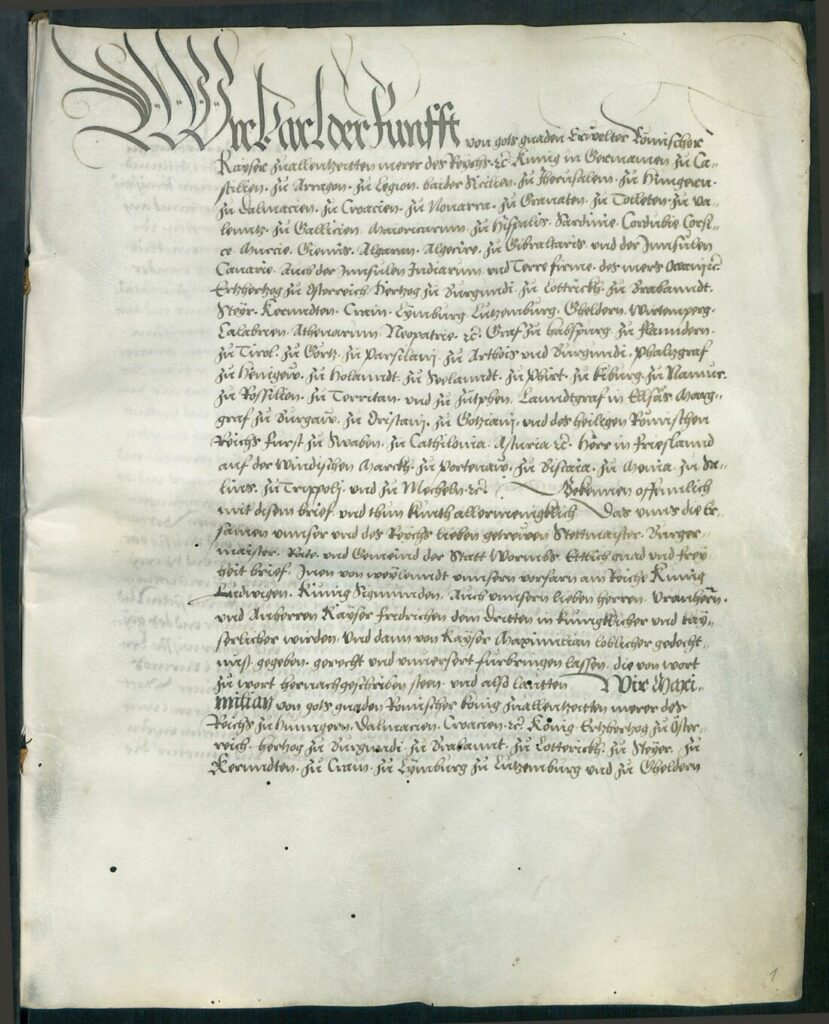 Wir Carl der Funfft von gots gnaden Erwelter Römischer
Kayser zuallentzeitten merer des Reychs ⁊c Kunig in Germanien zu Ca-
stilien. zu Arragon. zu Legion. baider Sicilien. zu Iherusalem. zu Hungern.
zu Dalmacien. zu Croacien. zu Nauarra. zu Granaten. zu Tolleten. zu Va-
lentz. zu Gallicien. Maioricarum. zu Hispalis. Sardinie. Cordubie Corsi-
ce Murcie. Giennis. Algaron. Algezire. zu Gibraltaris und der Innsulen
Canarie. Auch der Innsulen Indiarum und Terre firme. des mers Oceani ⁊c
Ertzhertzog zu Osterreich. Hertzog zu Burgundi. zu Lotterickh. zu Brabanndt.
Steyr. Kerndten. Crain. Lymburg Lutzemburg. Gheldern. Wirtemperg.
Calabrien. Athenarum. Neopatrie. ⁊c. Graf zu Habspurg. zu Flanndern.
zu Tirol. zu Görtz. zu Parsilani. zu Arthois und Burgundi. Phaltzgraf
zu Henigew. zu Holanndt. zu Seelanndt. zu Phirt. zu Kiburg. zu Namur.
zu Rossilion. zu Territan. und zu Zutphen. Lanndtgraf in Ellsäs Marg-
graf zu Burgaw. zu Oristani. zu Gotziani. und des heiligen Römischen
Reichs furst zu Swaben. zu Cathilonia. Asturia ⁊c. Herr in Frieslannd
auf der Windischen Marckh. zu Portenaw. zu Biscaia. zu Monia. zu Sa-
lins. zu Trippoli. und zu Mecheln. ⁊c. Bekennen offennlich
mit disem brief. und thun kunth allermenigklich. Das unns die Er-
samen unnser und des Reychs lieben getrewen Stettmaister. Burger-
maister. Rate. und Gemeind der Statt Wormbs. Ettlich gnad und frey-
heit brief. Inen von weylenndt unnsern vorfarn am Reiche Kunig
Ludwigen. Kunig Sigmunden. Auch unnsern lieben herren. Vranherrn.
und Anherren Kayser Fridrichen dem Dritten in kunigklicher und kay-
serlicher wirden. Und dann von Kayser Maximilian loblicher gedecht-
nuss gegeben. gerecht und unversert furbringen lassen. die von wort
zu wort hernachgeschriben steen. und also lautten Wir Maxi-
milian von gots gnaden Romischer konig zuallentzeitten merer des
Reichs zu Hunngern. Dalmacien. Croacien. ⁊c. Konig Ertzhertzog zu Oster-
reich. Hertzog zu Burgundi. zu Brabannt. zu Lotterickh. zu Steyer. zu
Kernndten. zu Crain. zu Lymburg zu Lutzemburg und zu Gheldern
1